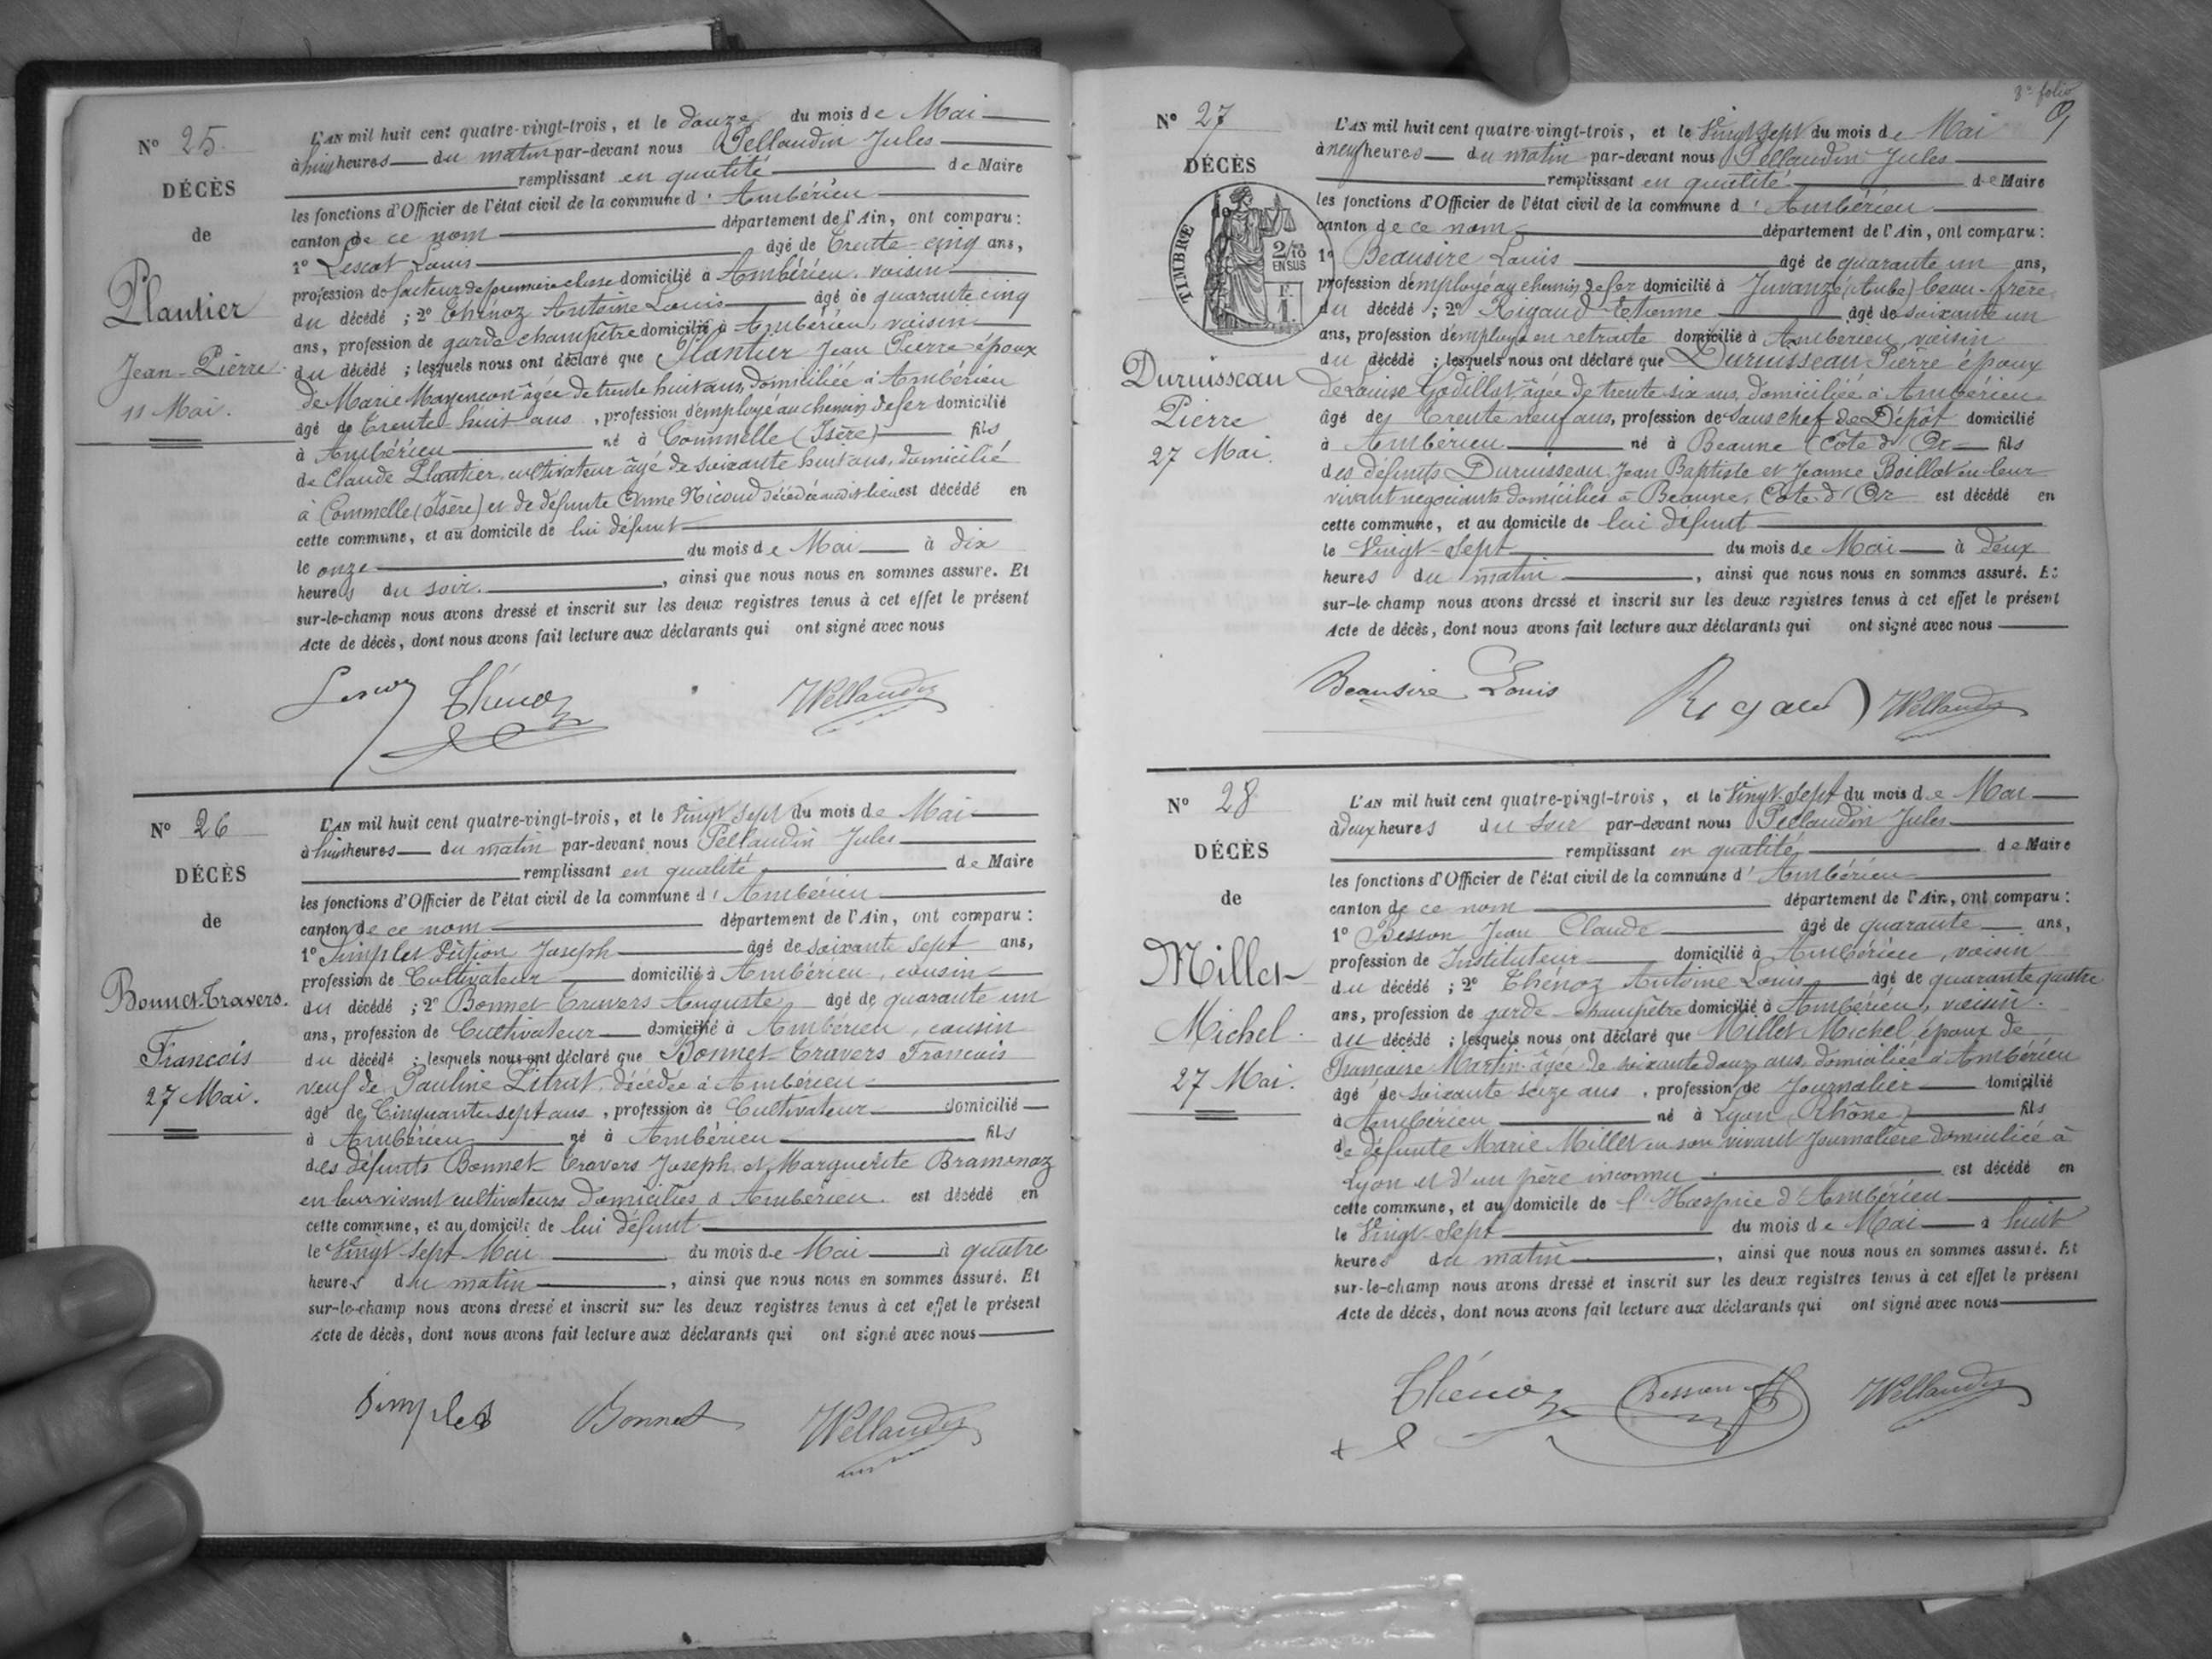 N° 25
DÉCÈS
de
Plantier
Jean-Pierre
11 Mai.
L'AN mil huit cent quatre-vingt-trois, et le douze du mois de Mai
à huit heures du matin par-devant nous Pellaudin Jules
remplissant en qualité de Maire
les fonctions d'Officier de l'état civil de la commune d'Ambérieu
canton de ce nom département de l'Ain, ont comparu :
1° Lescot Louis âgé de trente-cinq ans,
profession de facteur de première classe domicilié à Ambérieu, voisin
du décédé ; 2° Thénoz Antoine Louis âgé de quarante cinq
ans, profession de garde champêtre domicilié à Ambérieu, voisin
du décédé ; lesquels nous ont déclaré que Plantier Jean Pierre époux
de Marie Mayençon âgée de trente huit ans, domiciliée à Ambérieu
âgé de trente-huit ans, profession d'employé au chemin de fer domicilié
à Ambérieu né à Commelle (Isère) fils
de Claude Plantier, cultivateur âgé de soixante huit ans, domicilié
à Commelle (Isère) et de défunte Anne Nicoud décédée audit lieu est décédé en
cette commune, et au domicile de lui défunt
le onze du mois de Mai à dix
heures du soir, ainsi que nous nous en sommes assuré. Et
sur-le-champ nous avons dressé et inscrit sur les deux registres tenus à cet effet le présent
Acte de décès, dont nous avons fait lecture aux déclarants qui ont signé avec nous
Thénoz
JPellaudin
N° 26
DÉCÈS
de
Bonnet-Travers.
Francois
27 Mai.
L'AN mil huit cent quatre-vingt-trois, et le Vingt sept du mois de Mai
à huit heures du matin par-devant nous Pellaudin Jules
remplissant en qualité de Maire
les fonctions d'Officier de l'état civil de la commune d'Ambérieu
canton de ce nom département de l'Ain, ont comparu :
1° Simplet Joseph âgé de soixante sept ans,
profession de Cultivateur domicilié à Ambérieu, cousin
du décédé ; 2° Bonnet Travers Auguste âgé de quarante un
ans, profession de Cultivateur domicilié à Ambérieu, cousin
du décédé ; lesquels nous ont déclaré que Bonnet-Travers Francois
veuf de Pauline Litrat décédée à Ambérieu
âgé de Cinquante sept ans, profession de Cultivateur domicilié
à Ambérieu né à Ambérieu fils
des défunts Bonnet-Travers Joseph et Marguerite Bramonaz
en leur vivant cultivateurs domiciliés à Ambérieu. est décédé en
cette commune, et au domicile de lui défunt
le Vingt sept Mai du mois de Mai à quatre
heures du matin, ainsi que nous nous en sommes assuré. Et
sur-le-champ nous avons dressé et inscrit sur les deux registres tenus à cet effet le présent
Acte de décès, dont nous avons fait lecture aux déclarants qui ont signé avec nous
Simplet Bonnet JPellaudin
3e folio
9
N° 27
DÉCÈS
de
TIMBRE
2/10
EN SUS
Duruisseau
Pierre
27 Mai.
L'AN mil huit cent quatre-vingt-trois, et le Vingt sept du mois de Mai
à neuf heures du matin par-devant nous Pellaudin Jules
remplissant en qualité de Maire
les fonctions d'Officier de l'état civil de la commune d'Ambérieu
canton de ce nom département de l'Ain, ont comparu :
1° Beausire Louis âgé de quarante un ans,
profession d'employé au chemin de fer domicilié à Juvanzé (Aube) beau-frère
du décédé ; 2° Rigaud Etienne âgé de soixante un
ans, profession d'employé en retraite domicilié à Ambérieu, voisin
du décédé ; lesquels nous ont déclaré que Duruisseau Pierre époux
de Louise Godillot âgée de trente six ans, domiciliée à Ambérieu
âgé de trente neuf ans, profession de sous chef de Dépôt domicilié
à Ambérieu né à Beaune (Côte d'Or fils
des défunts Duruisseau Jean Baptiste et Jeanne Boillot en leur
vivant négociants domiciliés à Beaune, Côte d'Or est décédé en
cette commune, et au domicile de lui défunt
le Vingt-Sept du mois de Mai à deux
heures du matin, ainsi que nous nous en sommes assuré. Et
sur-le-champ nous avons dressé et inscrit sur les deux registres tenus à cet effet le présent
Acte de décès, dont nous avons fait lecture aux déclarants qui ont signé avec nous
Beausire Louis Rigaud JPellaudin
N° 28
DÉCÈS
de
Millet
Michel.
27 Mai.
L'AN mil huit cent quatre-vingt-trois, et le Vingt Sept du mois de Mai
à deux heures du soir par-devant nous Pellaudin Jules
remplissant en qualité de Maire
les fonctions d'Officier de l'état civil de la commune d'Ambérieu
canton de ce nom département de l'Ain, ont comparu :
1° Besson Jean Claude âgé de quarante ans,
profession de Instituteur domicilié à Ambérieu, voisin
du décédé ; 2° Thénoz Antoine Louis âgé de quarante quatre
ans, profession de garde-champêtre domicilié à Ambérieu, voisin.
du décédé ; lesquels nous ont déclaré que Millet Michel époux de
Françoise Martin âgée de soixante douze ans, domiciliée à Ambérieu
âgé de soixante seize ans, profession de Journalier domicilié
à Ambérieu né à Lyon (Rhône) fils
de défunte Marie Millet en son vivant Journalière domiciliée à
Lyon et d'un père inconnu. est décédé en
cette commune, et au domicile de l'Hospice d'Ambérieu
le Vingt-Sept du mois de Mai à huit
heures du matin, ainsi que nous nous en sommes assuré. Et
sur-le-champ nous avons dressé et inscrit sur les deux registres tenus à cet effet le présent
Acte de décès, dont nous avons fait lecture aux déclarants qui ont signé avec nous
Thénoz Besson JPellaudin